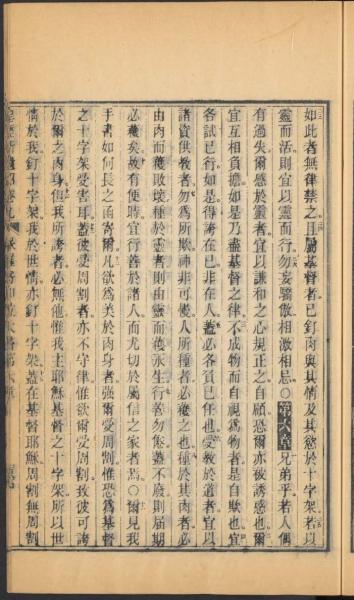 如此者無律禁之且屬基督者已釘肉與其情及其慾於十字架若以
靈而活則宜以靈而行勿妄驕傲相激相忌○第六章兄弟乎若人偶
有過失爾感於靈者宜以謙和之心規正之自顧恐爾亦被誘感也爾
宜互相負擔如是乃盡基督之律不成物而自視為物者是自欺也宜
各試已行如是得誇在已非在人蓋必各負已任也受教於道者宜以
諸資供教者勿為所欺神非可慢人所種者必穫之也種於其肉者必
由肉而穫敗壞種於靈者則由靈而穫永生行善勿倦蓋不廢則屆期
必穫矣故有便時宜行善於諸人而尤切於屬信之家者焉○爾見我
手書如何長之函寄爾凡欲為美於肉身者強爾受周割惟恐為基督
之十字架受害耳蓋彼受周割者亦不守律惟欲爾受周割致彼可誇
於爾之肉身但我所誇者必無他惟我主耶穌基督之十字架所以世
情於我釘十字架我於世情亦釘十字架蓋在基督耶穌周割無周割